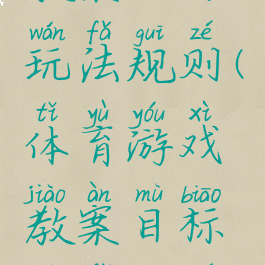 wán fǎ guī zé
玩法规则(
tǐ yù yóu xì
体育游戏
jiào àn mù biāo
教案目标